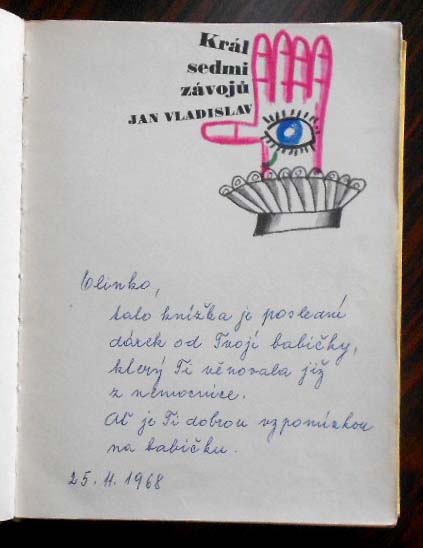 Král
sedmi
závojů
JAN VLADISLAV
Olinko,
tato knížka je poslední
dárek od Tvojí babičky,
který Ti věnovala již
z nemocnice.
Ať je Ti dobrou vzpomínkou
na babičku.
25. 11. 1968